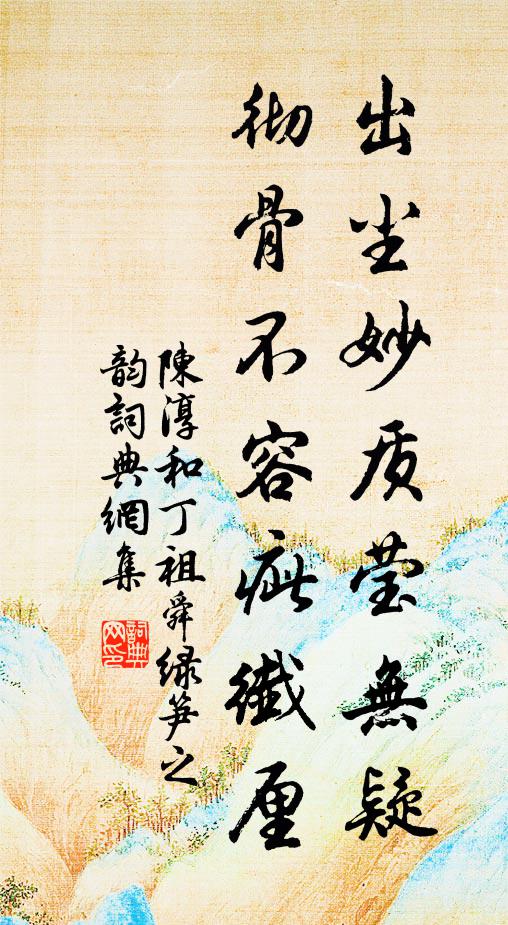 出尘妙质莹無疑
彻骨不容疵纖厘
陳淳和丁祖舜绿笋之
韵詞典網集
詞典网印